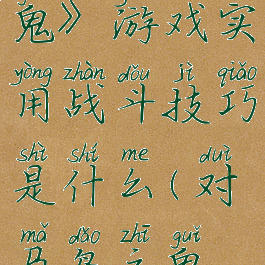 鬼》 游戏实
yòng zhàn dǒu jì qiǎo
用战斗技巧
shì shí me duì
是什么（对
mǎ dǎo zhī guǐ
马岛之鬼